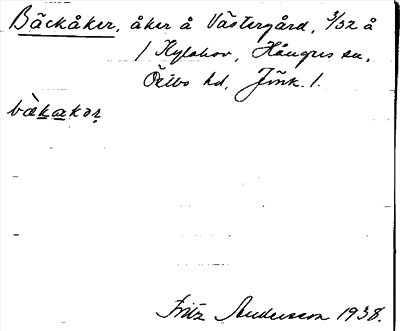 Bäckåker, åker å Västergård, 3/32 å
1 Kylahov, Hångers sn,
Östbo hd, Jönk. l.
bæ̀kakər
Fritz Andersson 1938.